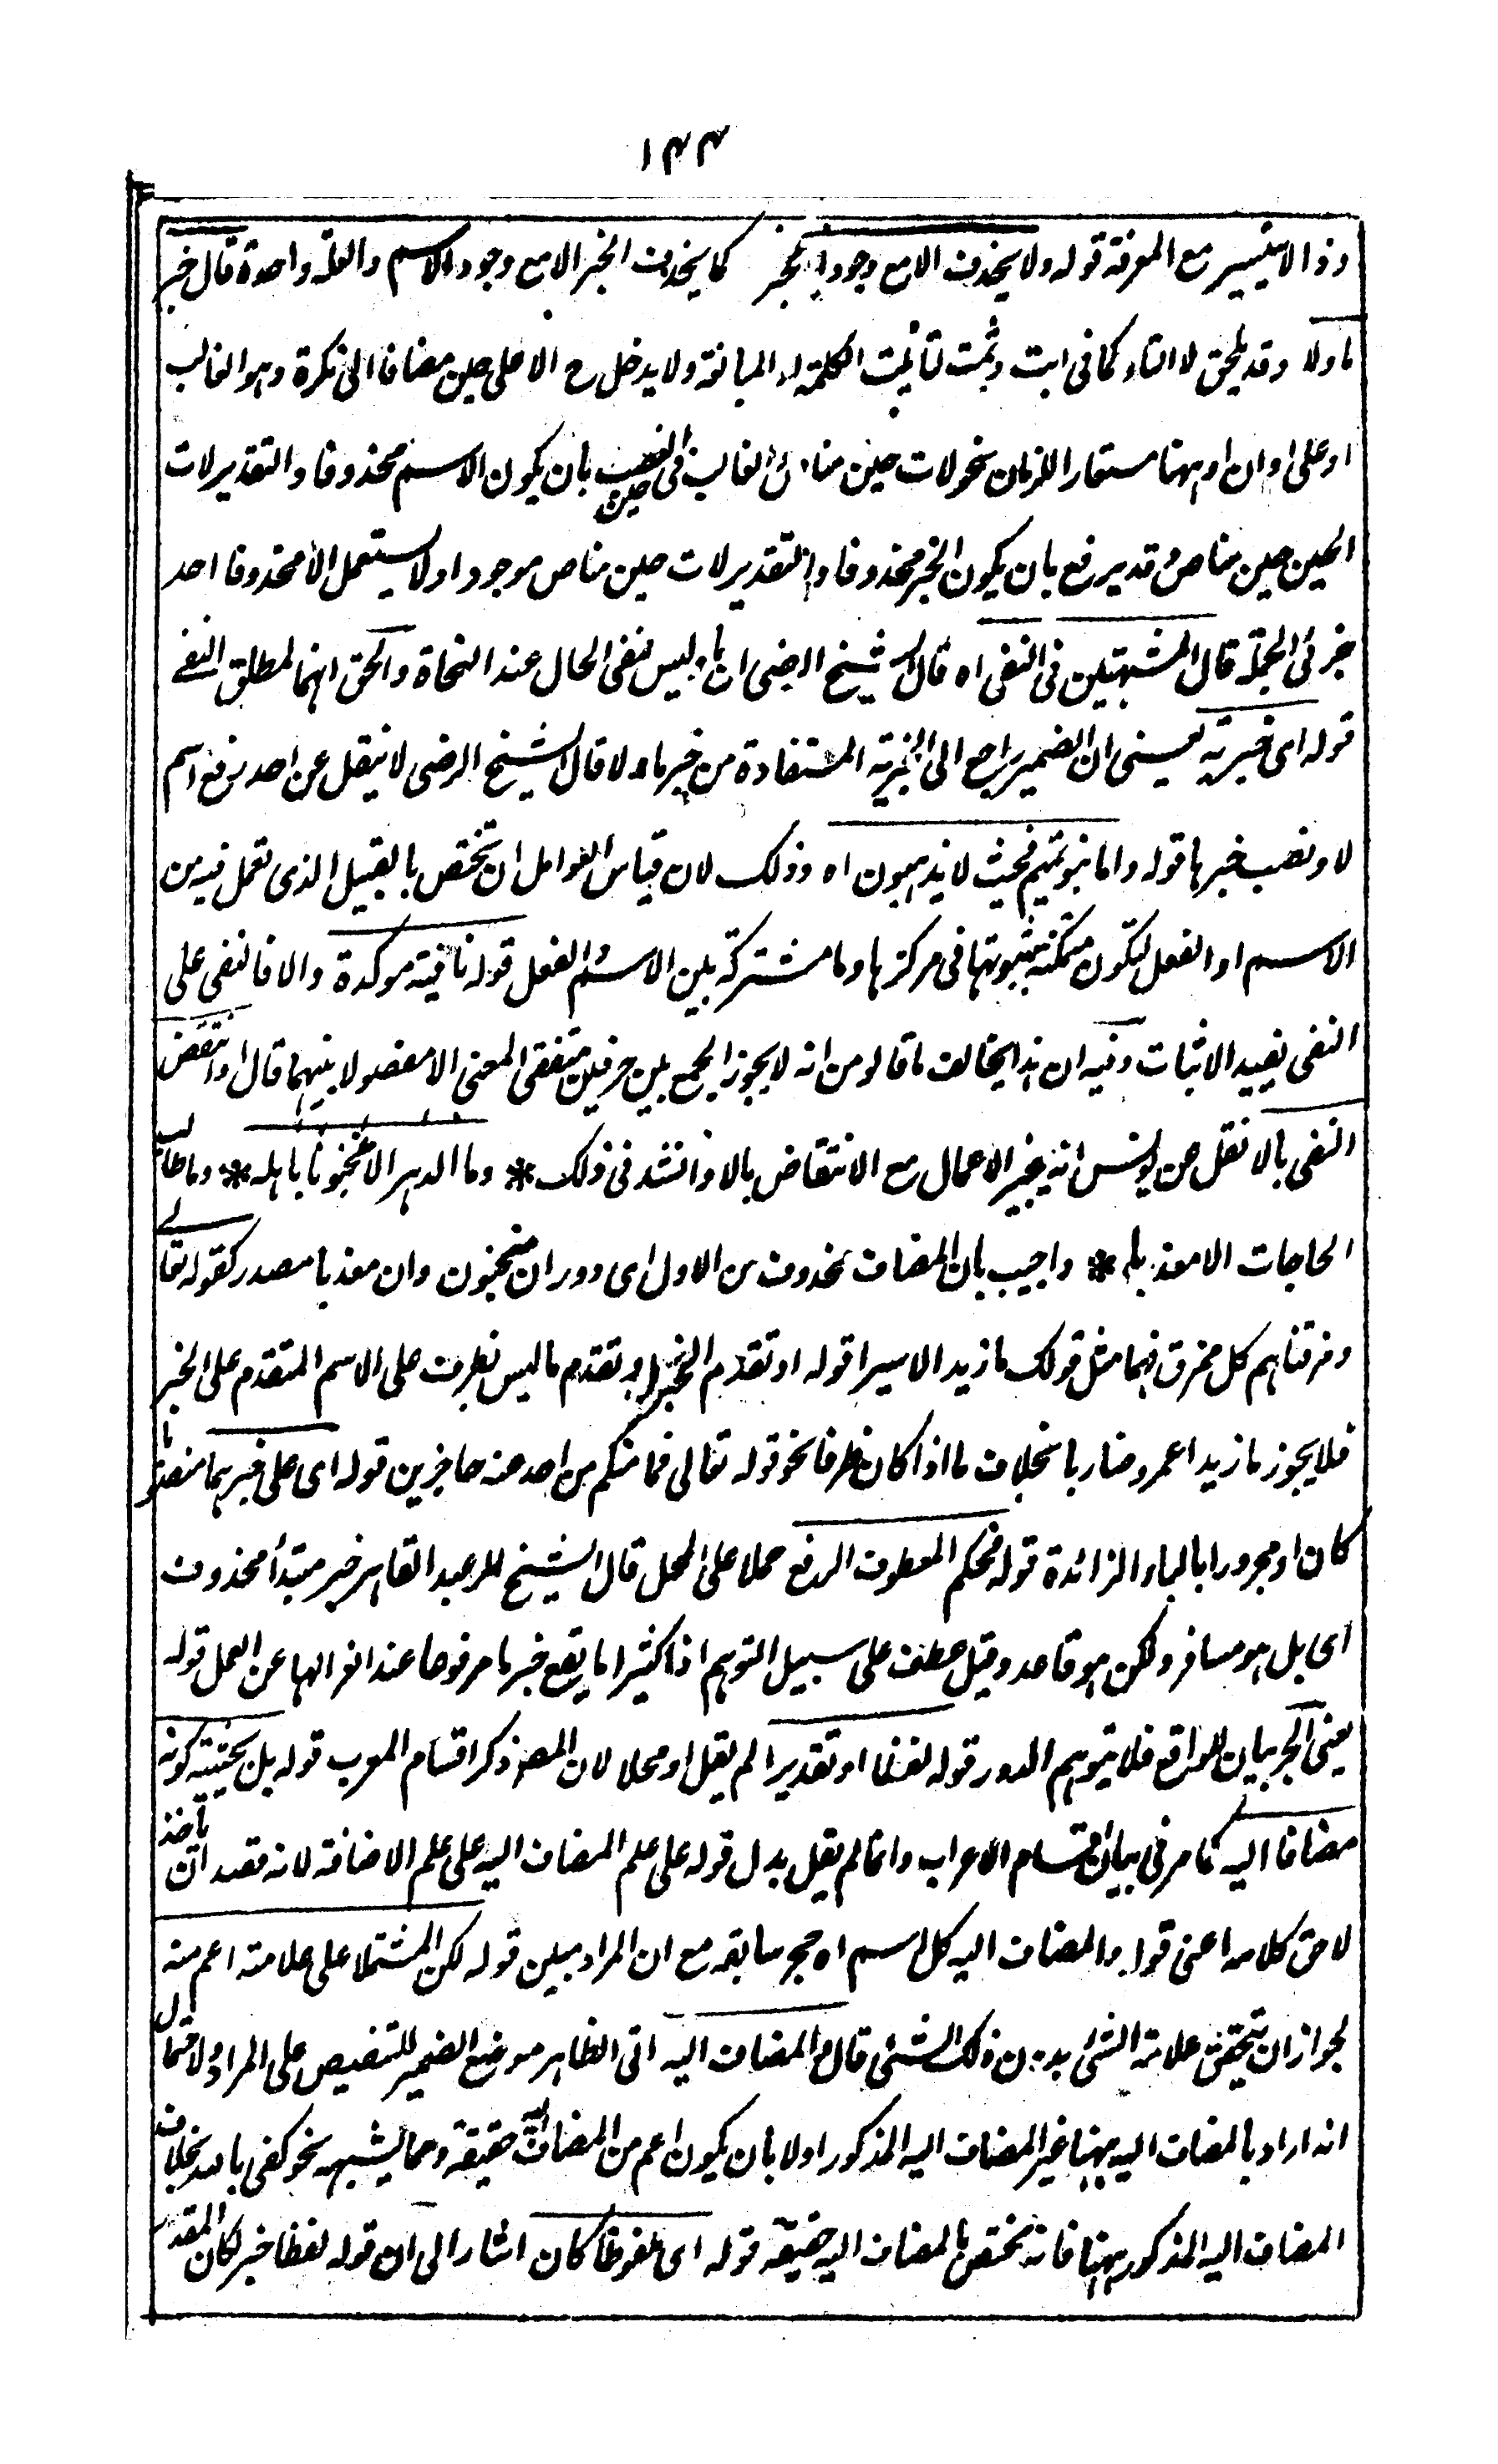 ١٤٤
وذا لا يتيسر مع المعرفة قوله ولا يحذف الا مع وجود الخبر كما يحذف الخبر الا مع وجود الاسم والعلة واحدة قال خبر
ما ولا وقد يلحق لا التاء كما فى ربت وثمت لتانيث الكلمة او المبالغة ولا يدخل ح الا على حين مضافا الى نكرة وهو الغالب
او على اوان او هنا مستعارا للزمان نحو لات حين مناص والغالب فى حين النصب بان يكون الاسم محذوفا والتقدير لات
الحين حين مناص وقد يرفع بان يكون الخبر محذوفا والتقدير لات حين مناص موجودا ولا يستعمل الا محذوفا احد
جزئى الجملة قال المشبهتين فى النفى اه قال الشيخ الرضى ان ما وليس لنفى الحال عند النحاة والحق انهما لمطلق النفے
قوله اى خبريته يعنى ان الضمير راجع الى الخبرية المستفادة من خبر ما ولا قال الشيخ الرضى لا ينقل عن احد رفع اسم
لا ونصب خبرها قوله واما بنو تميم فحيث لا يذهبون اه وذلك لان قياس العوامل ان تختص بالقبيل الذى تعمل فيه من
الاسم او الفعل لتكون متمكنة بثبوتها فى مركزها وما مشتركة بين الاسم والفعل قوله نافية موكدة والا فالنفى على
النفى يفيد الاثبات وفيه ان هذا يخالف ما قالو من انه لا يجوز الجمع بين حرفين متفقى المعنى الا مفصولا بينهما قال او انتقض
النفى بالا نقل عن يونس انه يجيز الاعمال مع الانتقاض بالا وانشد فى ذلك * وما الدهر الا منجنونا باهله * وما طالب
الحاجات الا معذبا * واجيب بان المضاف محذوف من الاول اى دوران منجنون وان معذبا مصدر كقوله تعالے
ومزقناهم كل ممزق فهما مثل قولك ما زيد الا سيرا قوله او تقدم الخبر او تقدم ما ليس بظرف على الاسم المتقدم على الخبر
فلا يجوز ما زيدا عمرو ضاربا بخلاف ما اذا كان ظرفا نحو قوله تعالى فما منكم من احد عنه حاجزين قوله اى على خبرهما منصوبا
كان او مجرورا بالباء الزائدة قوله فحكم المعطوف الرفع حملا على المحل قال الشيخ عبد القاهر خبر مبتدأ محذوف
اى بل هو مسافر ولكن هو قاعد وقيل عطف على سبيل التوهم اذ كثيرا ما يقع خبر ما مرفوعا عند انعزالها عن العمل قوله
يعنى الجر بيان للواقع فلا يتوهم الدور قوله لفظا او تقديرا لم يقل او محلا لان المص ذكر اقسام المعرب قوله بل بحيثية كونه
مضافا اليه كما مر فى بيان اقسام الاعراب وانما لم يقل بدل قوله على علم المضاف اليه على علم الاضافة لانه قصد ان ياخذ
لاحق كلامه اعنى قوله والمضاف اليه كل اسم اه حجر سابقه مع ان المراد مبين قوله لكن المشتمل على علامته اعم منه
لجواز ان يتحقق علامة الشئى بدون ذلك الشئى قال والمضاف اليه اتى الظاهر موضع الضمير للتنصيص على المراد ولاحتمال
انه اراد بالمضاف اليه ههنا غير المضاف اليه المذكور اولا بان يكون اعم من المضاف اليه حقيقة ومما يشبهه نحو كفى بالله بخلاف
المضاف اليه المذكور ههنا فانه مختص بالمضاف اليه حقيقة قوله اى ملفوظا كان اشار الى ان قوله لفظا خبر لكان المقدر